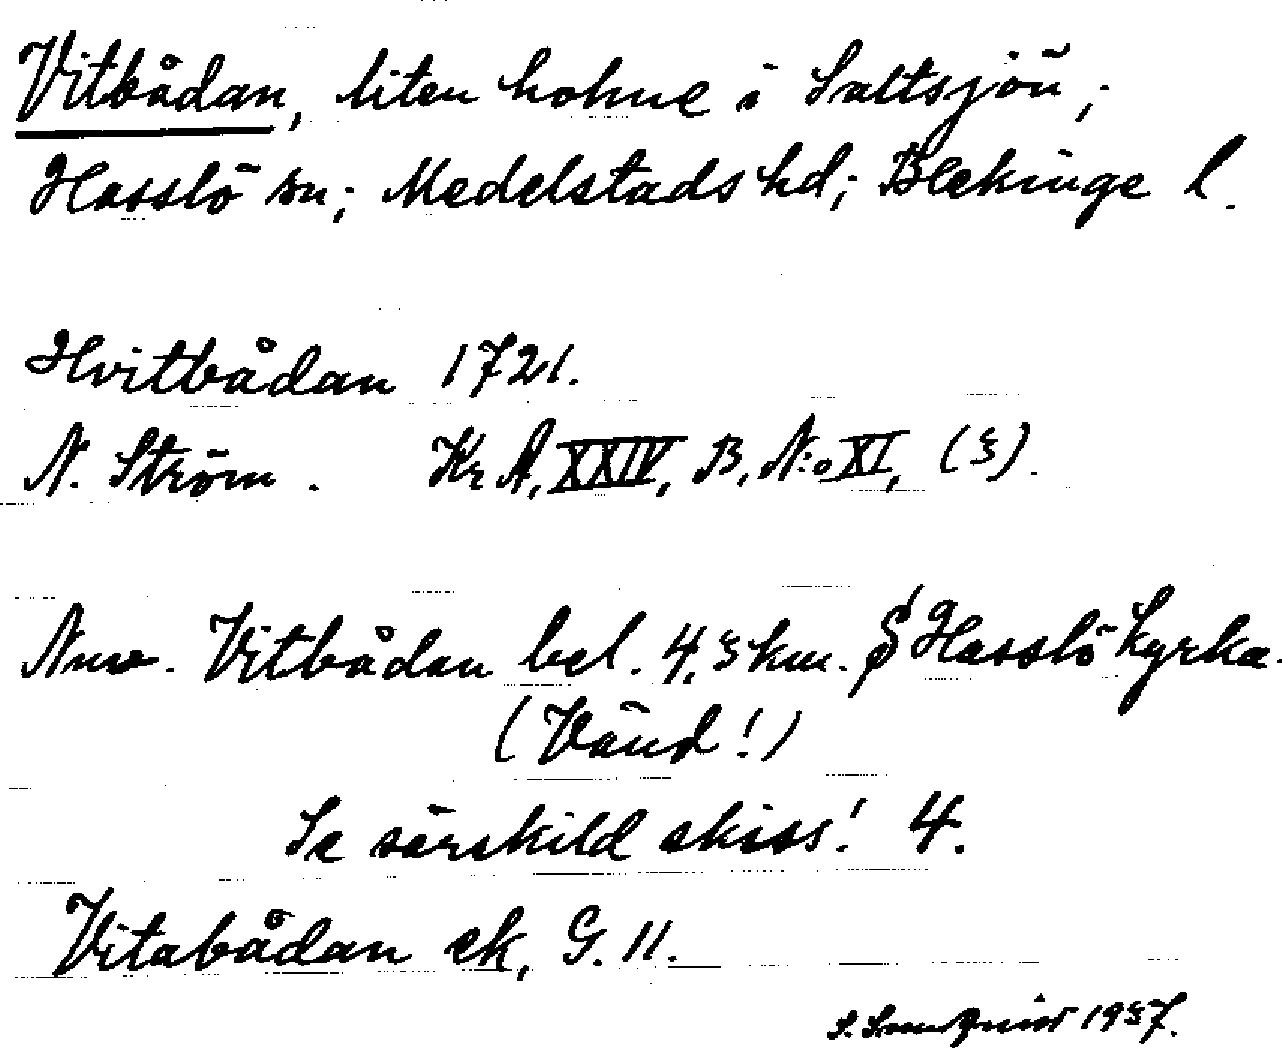 Vitbådan, liten holme i Saltsjön;
Hasslö sn; Medelstads hd; Blekinge l.
Hvitbådan 1721.
N. Ström. Kr A, XXIV, B, N:o XI, (5).
Nuv. Vitbådan bel. 4,5 km. S Hasslö kyrka.
(Vänd!)
Se särskild skiss! 4.
Vitabådan ek, G. 11.
1957.